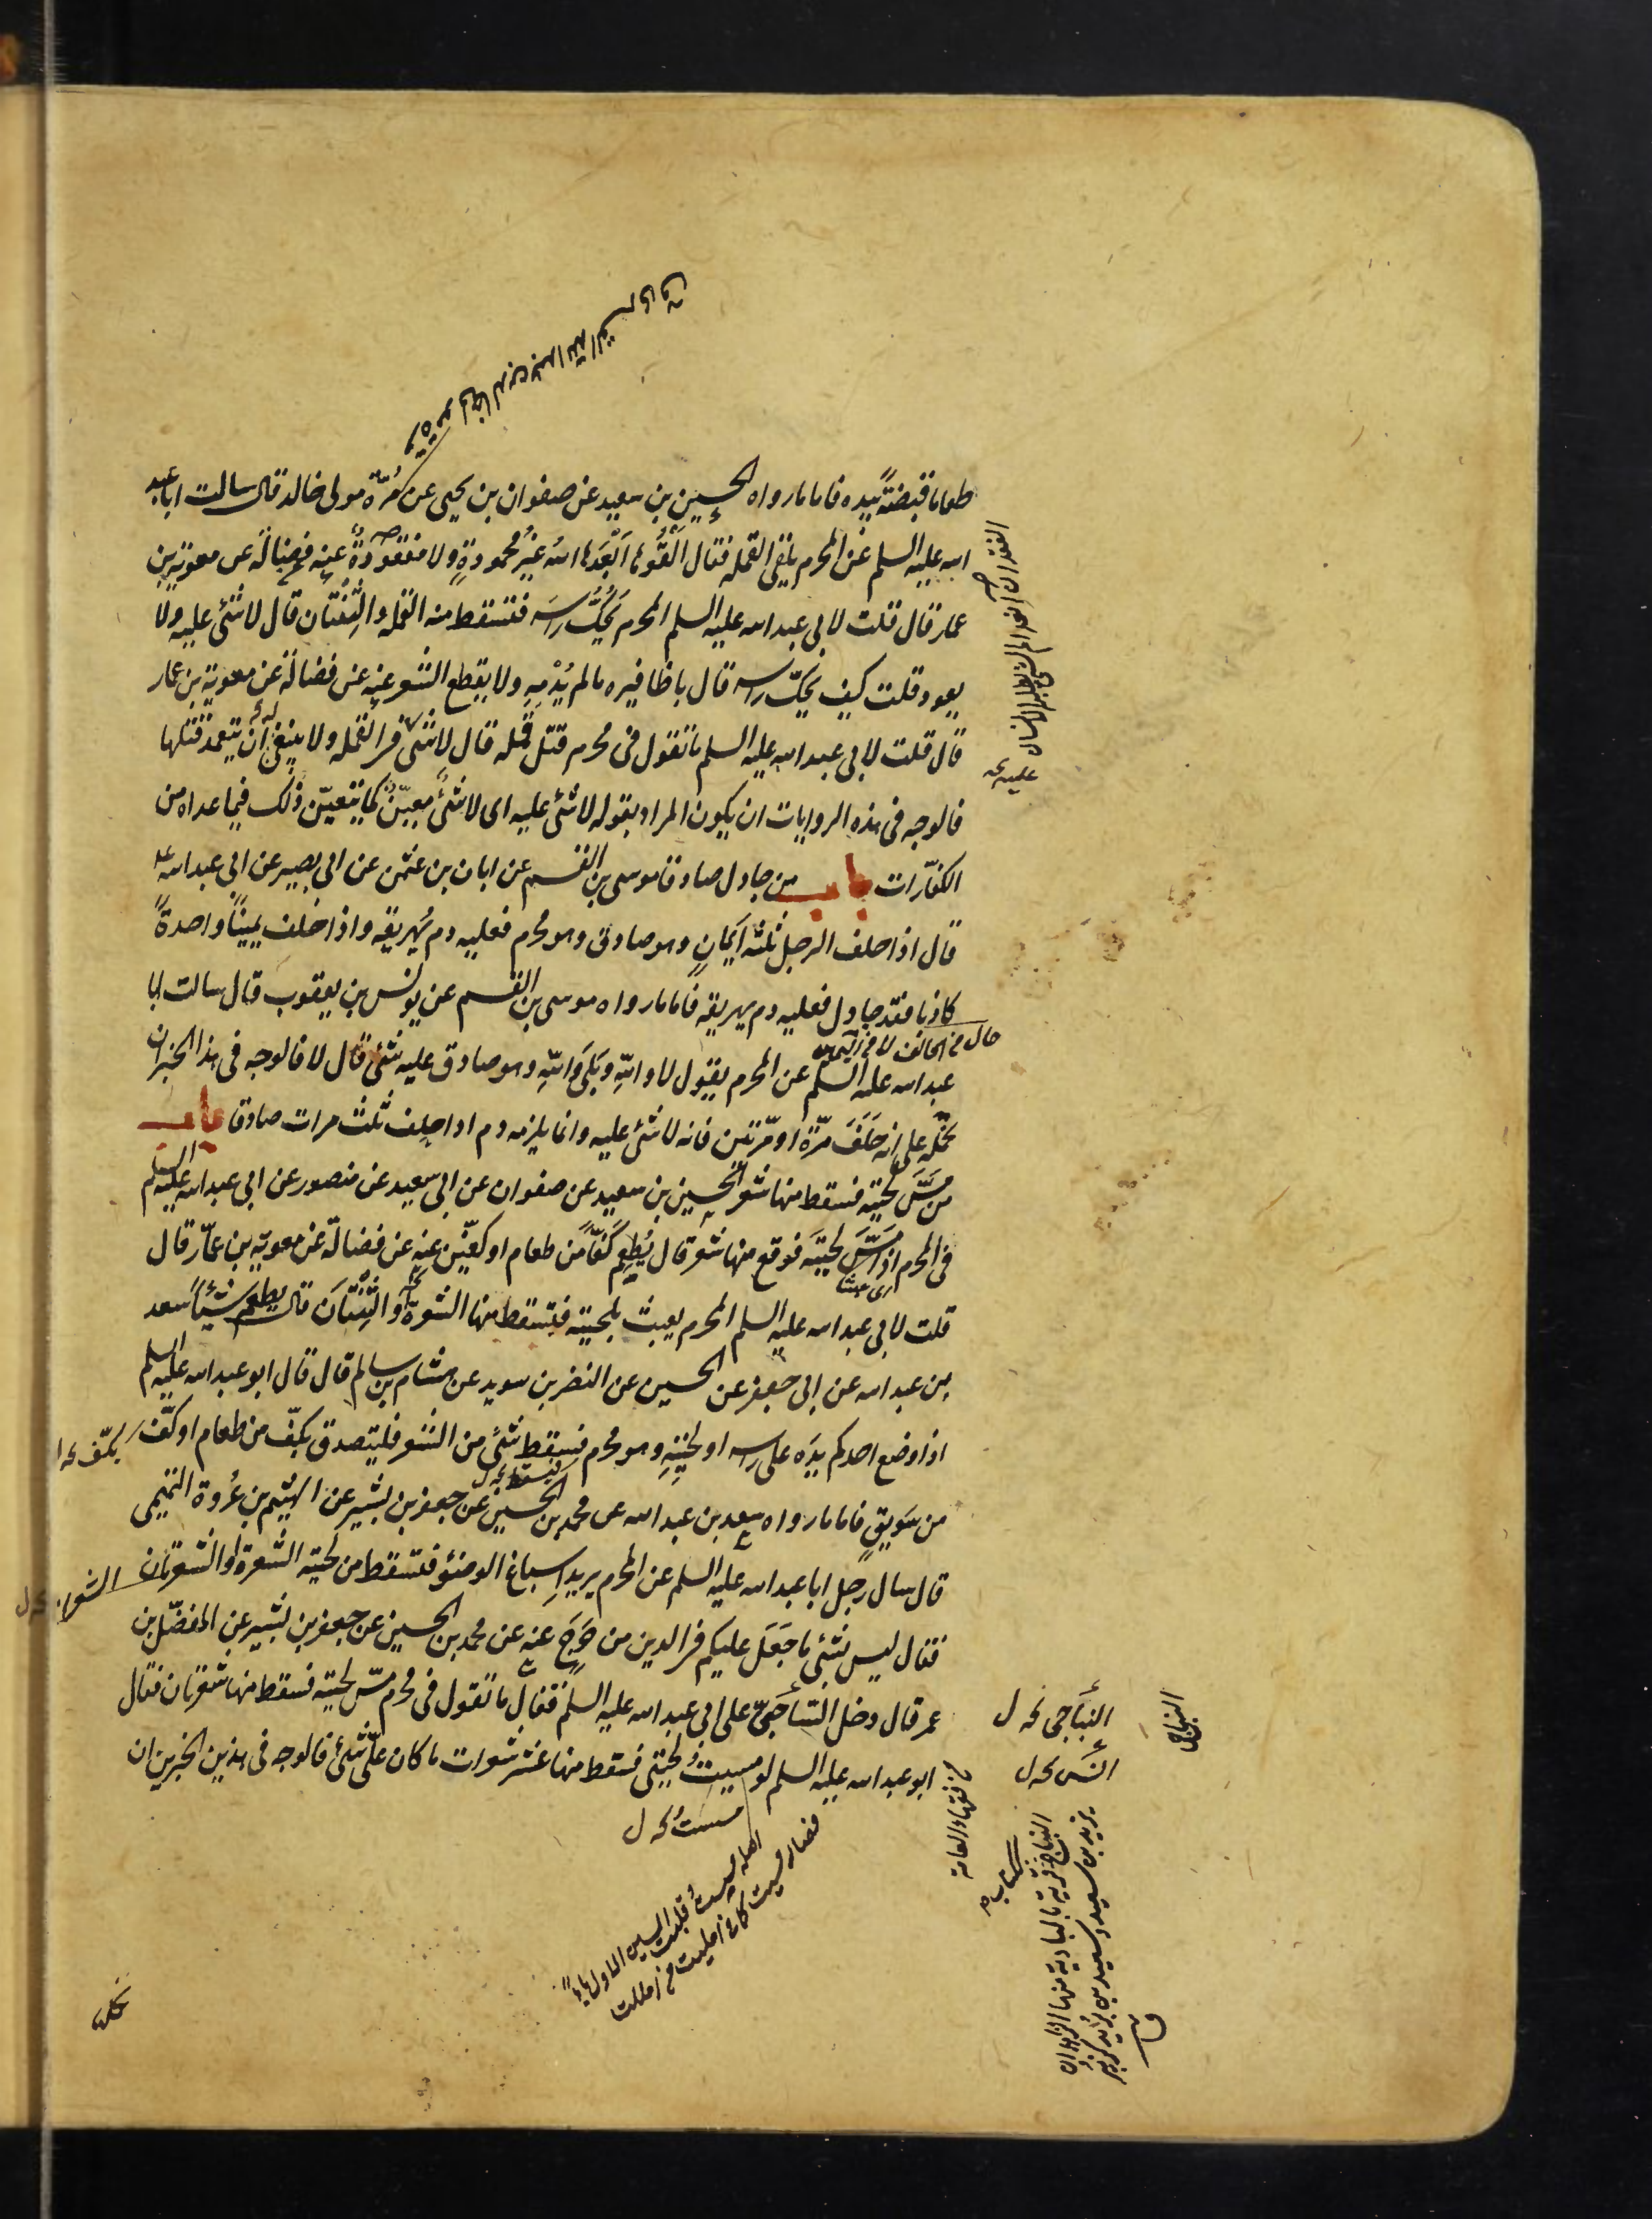 طعاما قبضةً بيده فاما ما رواه الحسين بن سعيد عن صفوان بن يحيى عن مُرّة مولى خالد قال سالت ابا عبد
الله عليه السلم عن المحرم يلقى القمله فقال اَلْقُوها اَبْعَدَها الله غيرُ محمودةٍ ولا مفقودةٌ عنه فضالة عن معوية بن
عمار قال قلت لابى عبد الله عليه السلم المحرم يحُكُّ راسَه فتسقط منه القملة والثِنْتان قال لا شئى عليه ولا
يعود قلت كيف يحكّ راسه قال باظافيره ما لم يُدْمِهِ ولا يقطع الشعر عنه عن فضالة عن معوية بن عمار
قال قلت لابى عبد الله عليه السلم ما تقول فى محرم قتل قمله قال لا شئى فى القمله ولا ينبغى ان يتعمد قتلها
فالوجه فى هذه الروايات ان يكون المراد بقوله لا شئى عليه اى لا شئى معيّنٌ كما يتعيّن ذلك فيما عداه من
الكفّارات باب من جادل صادقا موسى بن القسم عن ابان بن عثمن عن ابى بصير عن ابى عبد الله ع
قال اذا حلف الرجل ثلثه اَيمانٍ وهو صادق وهو محرم فعليه دم يُهريقه واذا حلف يمينًا واحدةً
كاذبا فقد جادل فعليه دم يهريقه فاما ما رواه موسى بن القسم عن يونس بن يعقوب قال سالت ابا
عبد الله عليه السلم عن المحرم يقول لا والله وبَلَى والله وهو صادق عليه شئى قال لا فالوجه فى هذا الخبر ان
نحمله على انه حَلَفَ مرّة او مرّتين فانه لا شئى عليه وانما يلزمه دم اذا حلف ثلث مرات صادقا باب
من مَسَّ لحيته فسقط منها شعر الحسين بن سعيد عن صفوان عن ابى سعيد عن منصور عن ابى عبد الله عليه السلم
فى المحرم اذا مَسَّ لحيتَه فوقع منها شعر قال يُطعِم كَفًّا من طعام او كفّين عنه عن فضالة عن معوية بن عمّار قال
قلت لابى عبد الله عليه السلم المحرم يعبث بلحيته فتسقط منها الشعرة والثِنْتان قال يطعم شيئًا سعد
بن عبد الله عن ابى جعفر عن الحسين عن النضر بن سويد عن هشام بن سالم قال قال ابو عبد الله عليه السلم
اذا وضع احدكم يدَه على راسه او لحيتِهِ وهو محرم فسقط شئى من الشعر فليتصدق بكفّ من طعام او كفّ
من سَوِيقٍ فاما ما رواه سعد بن عبد الله عن محمد بن الحسين عن جعفر بن بشير عن الهيثم بن عُروة التميمى
قال سال رجل ابا عبد الله عليه السلم عن المحرم يريد اِسباغ الوضوء فتسقط من لحيته الشعرة او الشعرتان
فقال ليس بشئى ما جَعَلَ عليكم فى الدين من حَرَجٍ عنه عن محمد بن الحسين عن جعفر بن بشير عن المفضّل بن
عمر قال دخل النباجىّ على ابى عبد الله عليه السلم فقال ما تقول فى محرم مسّ لحيته فسقط منها شعرتان فقال
ابو عبد الله عليه السلم لو مسيتُ لحيتى فسقط منها عشر شعرات ما كان علىّ شئى فالوجه فى هذين الخبرين ان
بكفّ
النِبَاجى نحه ل
النباجى
مسستُ نحه ل
من فقهاء العامة
النباج قرية بالبادية منها الزاهدان
يزيد بن سعيد وسعيد بن يزيد كزبير
ق
اصله مسست قلبت السين الاولى ياءً
فصار مسيت كما فى امليت من امللت
نحمله